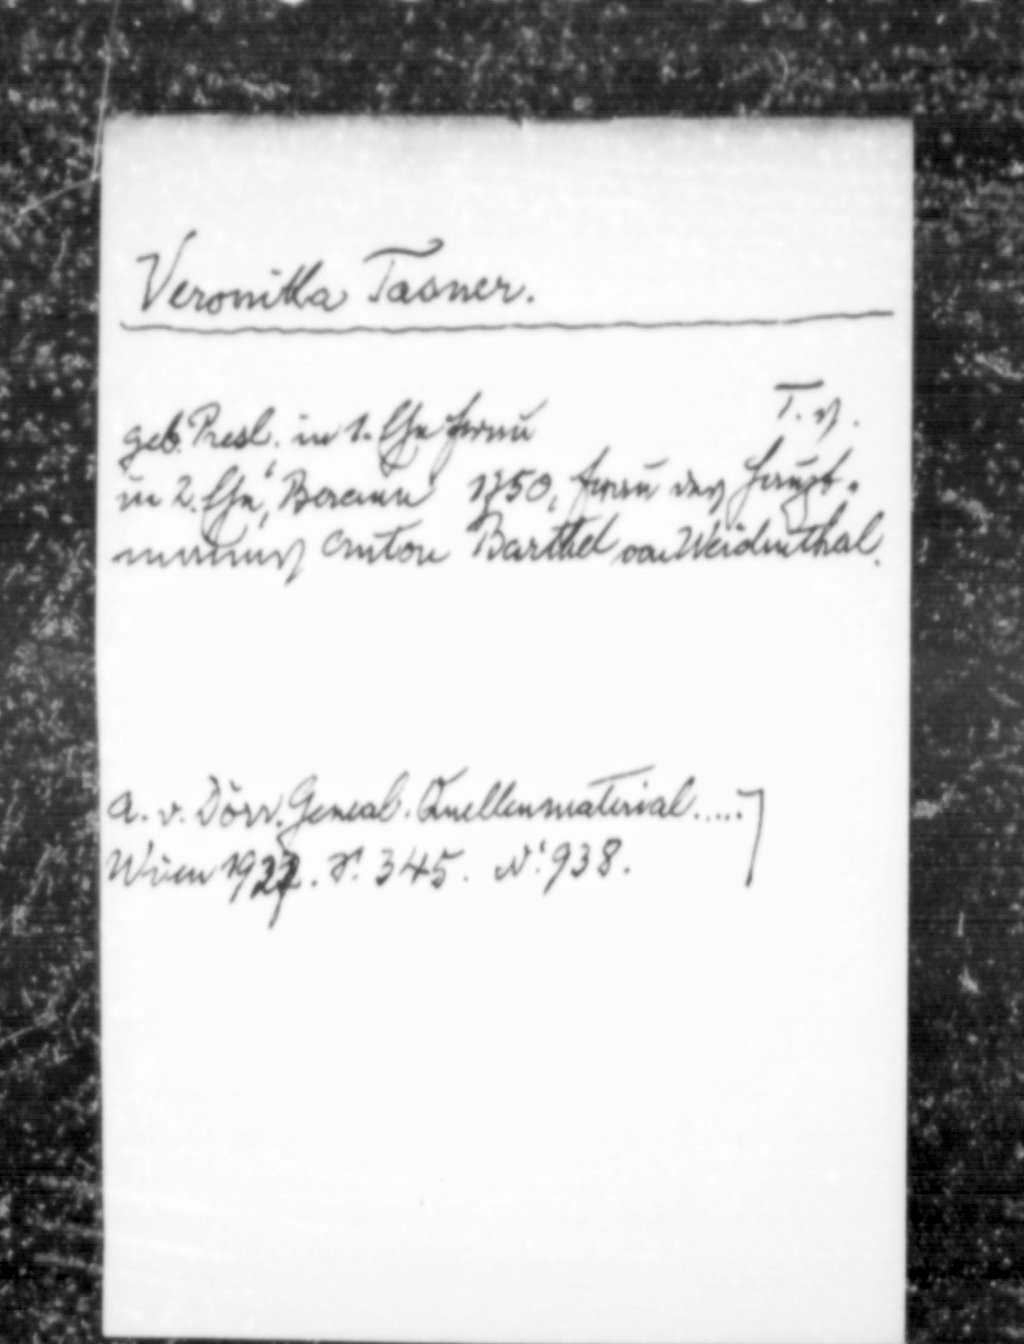 Veronikka Tasner.
geb. Presl. in 1. Ehe Frau T. s.
in 2. Ehe, Beraun 1750, Frau des Haupt-
manns Anton Barthel von Weidenthal.
A. v. Dörr. Geneal. Quellenmaterial.....]
Wien 1927. S. 345. N. 938.